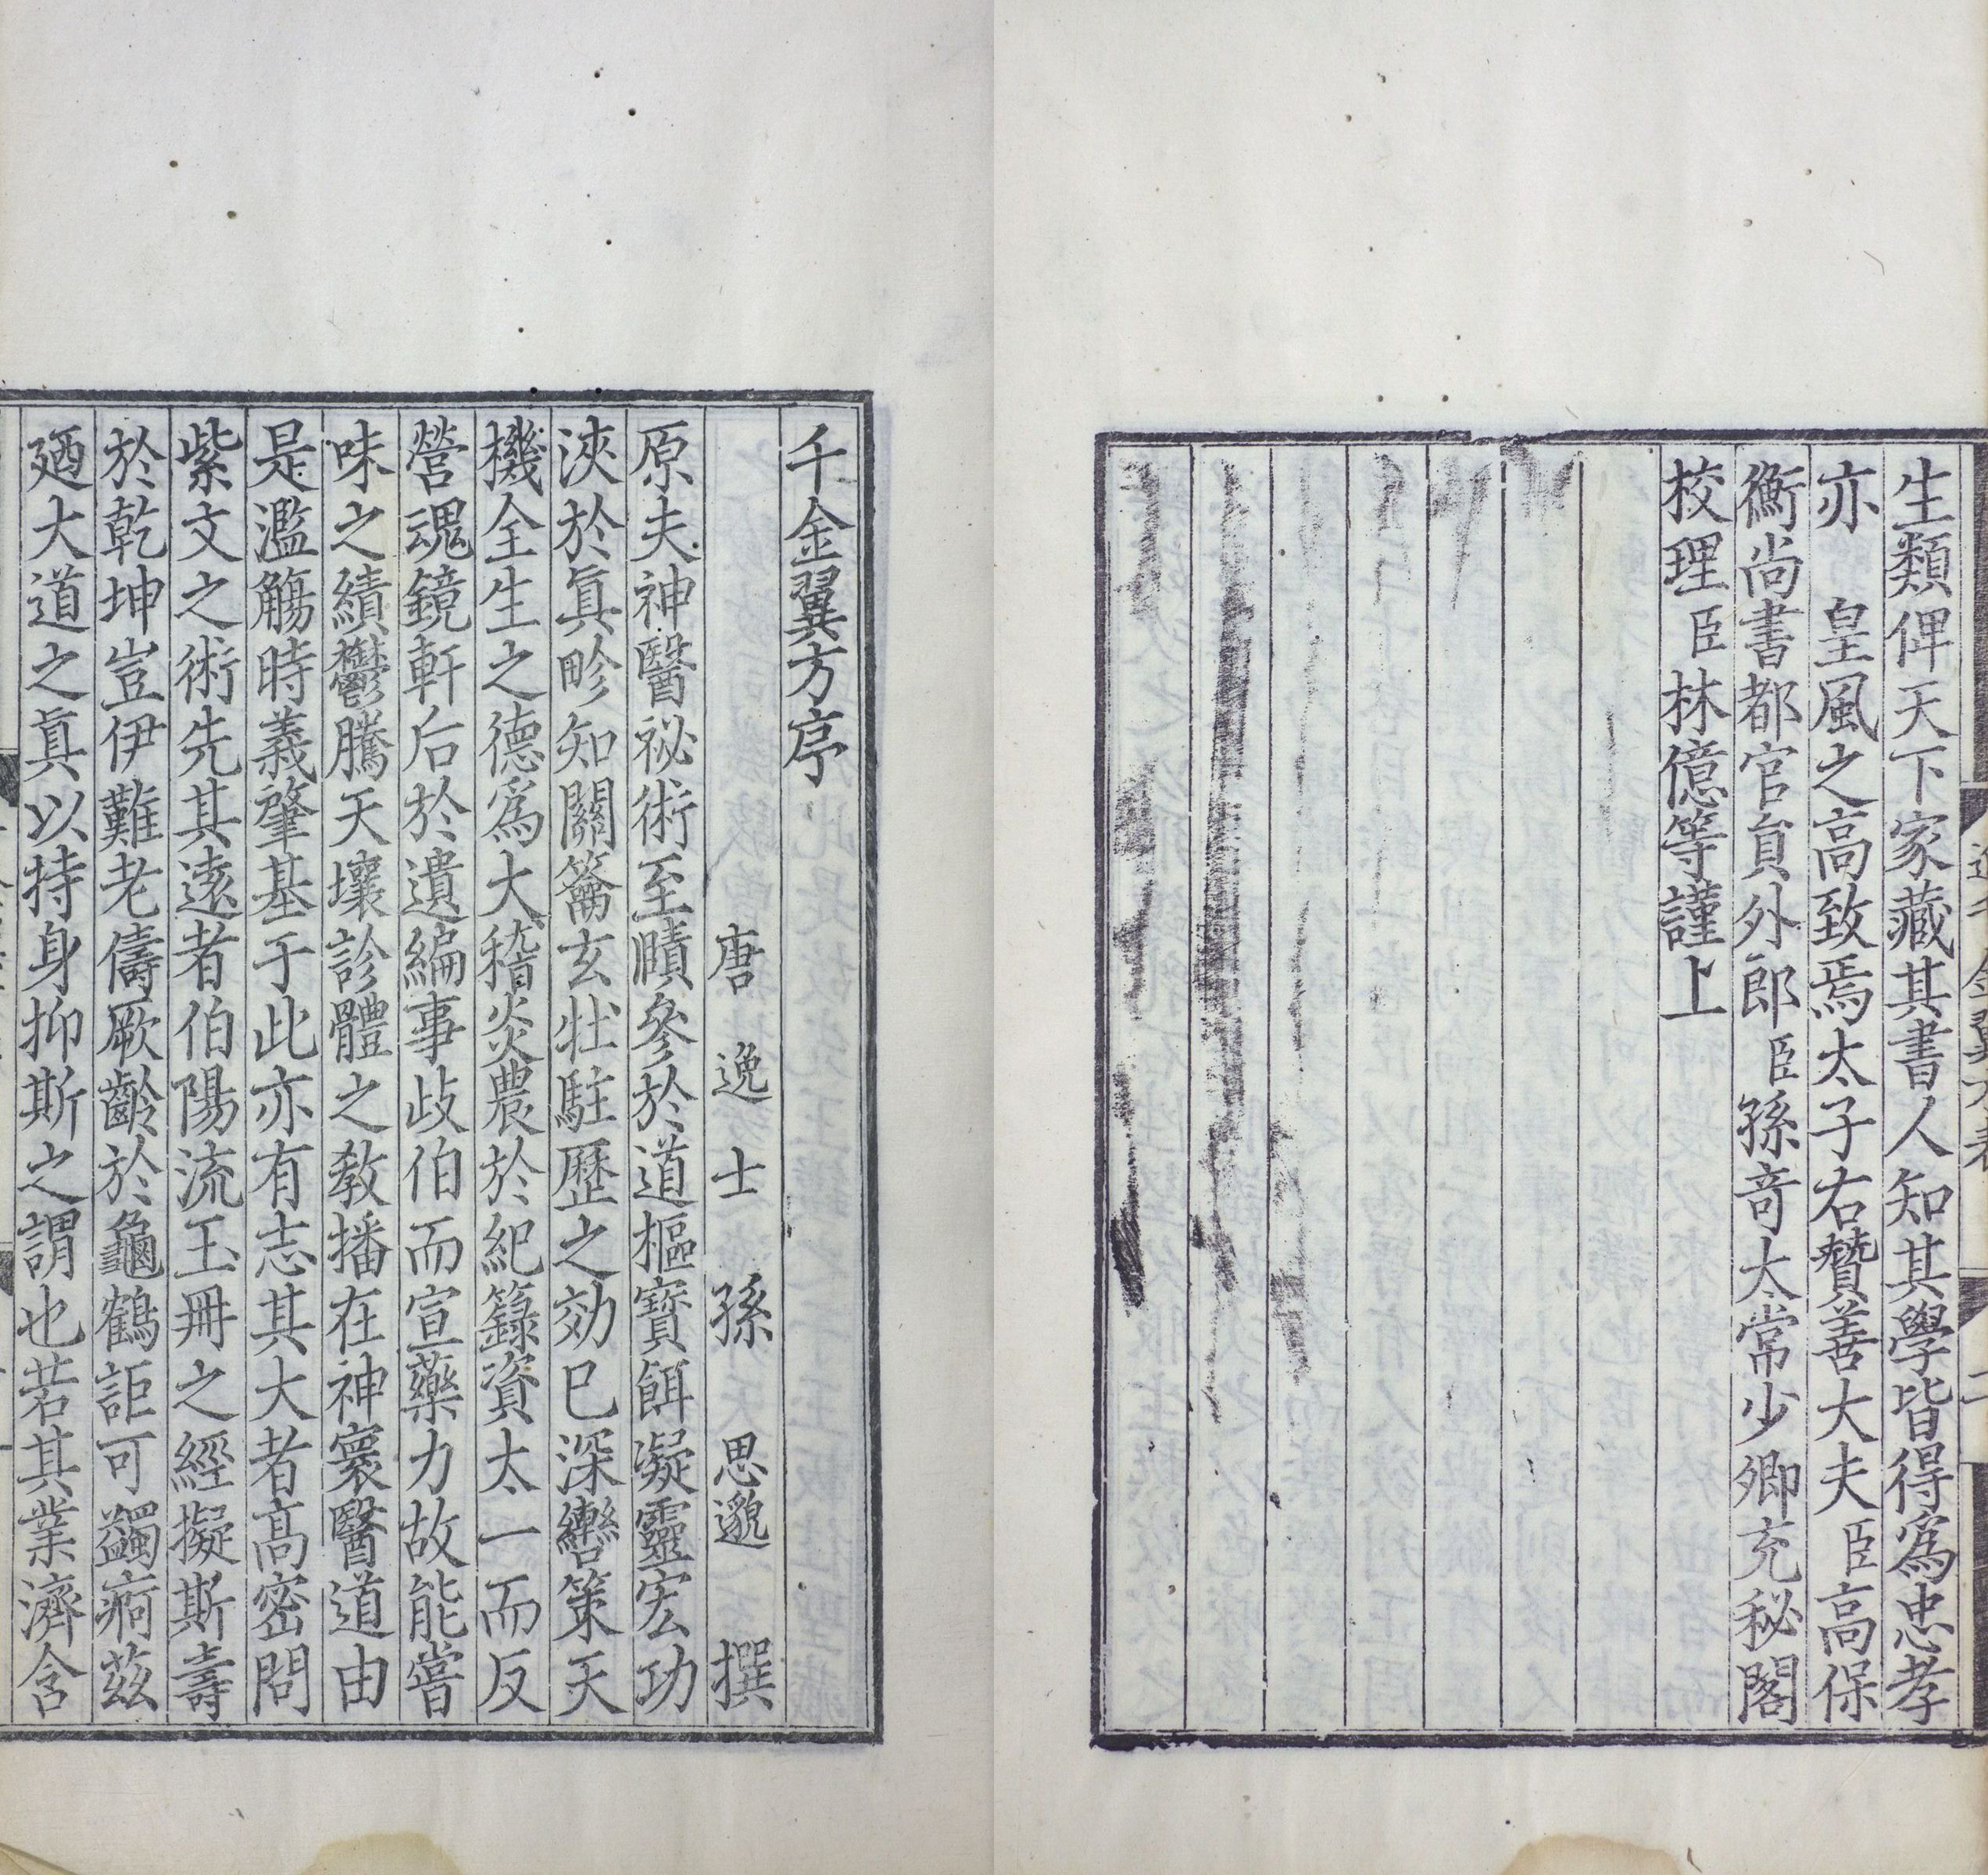 生類俾天下家藏其書人知其學皆得爲忠孝
亦　皇風之高致焉太子右贊善大夫臣高保
衡尚書都官員外郎臣孫竒太常少卿充秘閣
校理臣林億等謹上
千金翼方序
唐　逸　士　孫　思邈　撰
原夫神醫祕術至賾參於道樞寶餌凝靈宏功
浹於眞畛知關籥玄牡駐歷之効已深轡策天
機全生之德爲大稽炎農於紀籙資太一而反
營魂鏡軒后於遺編事歧伯而宣藥力故能嘗
味之績鬱騰天壤診體之教播在神寰醫道由
是濫觴時義肇基于此亦有志其大者高密問
紫文之術先其遠者伯陽流玉冊之經擬斯壽
於乾坤豈伊難老儔厥齡於龜鶴詎可蠲痾茲
廼大道之眞以持身抑斯之謂也若其業濟含